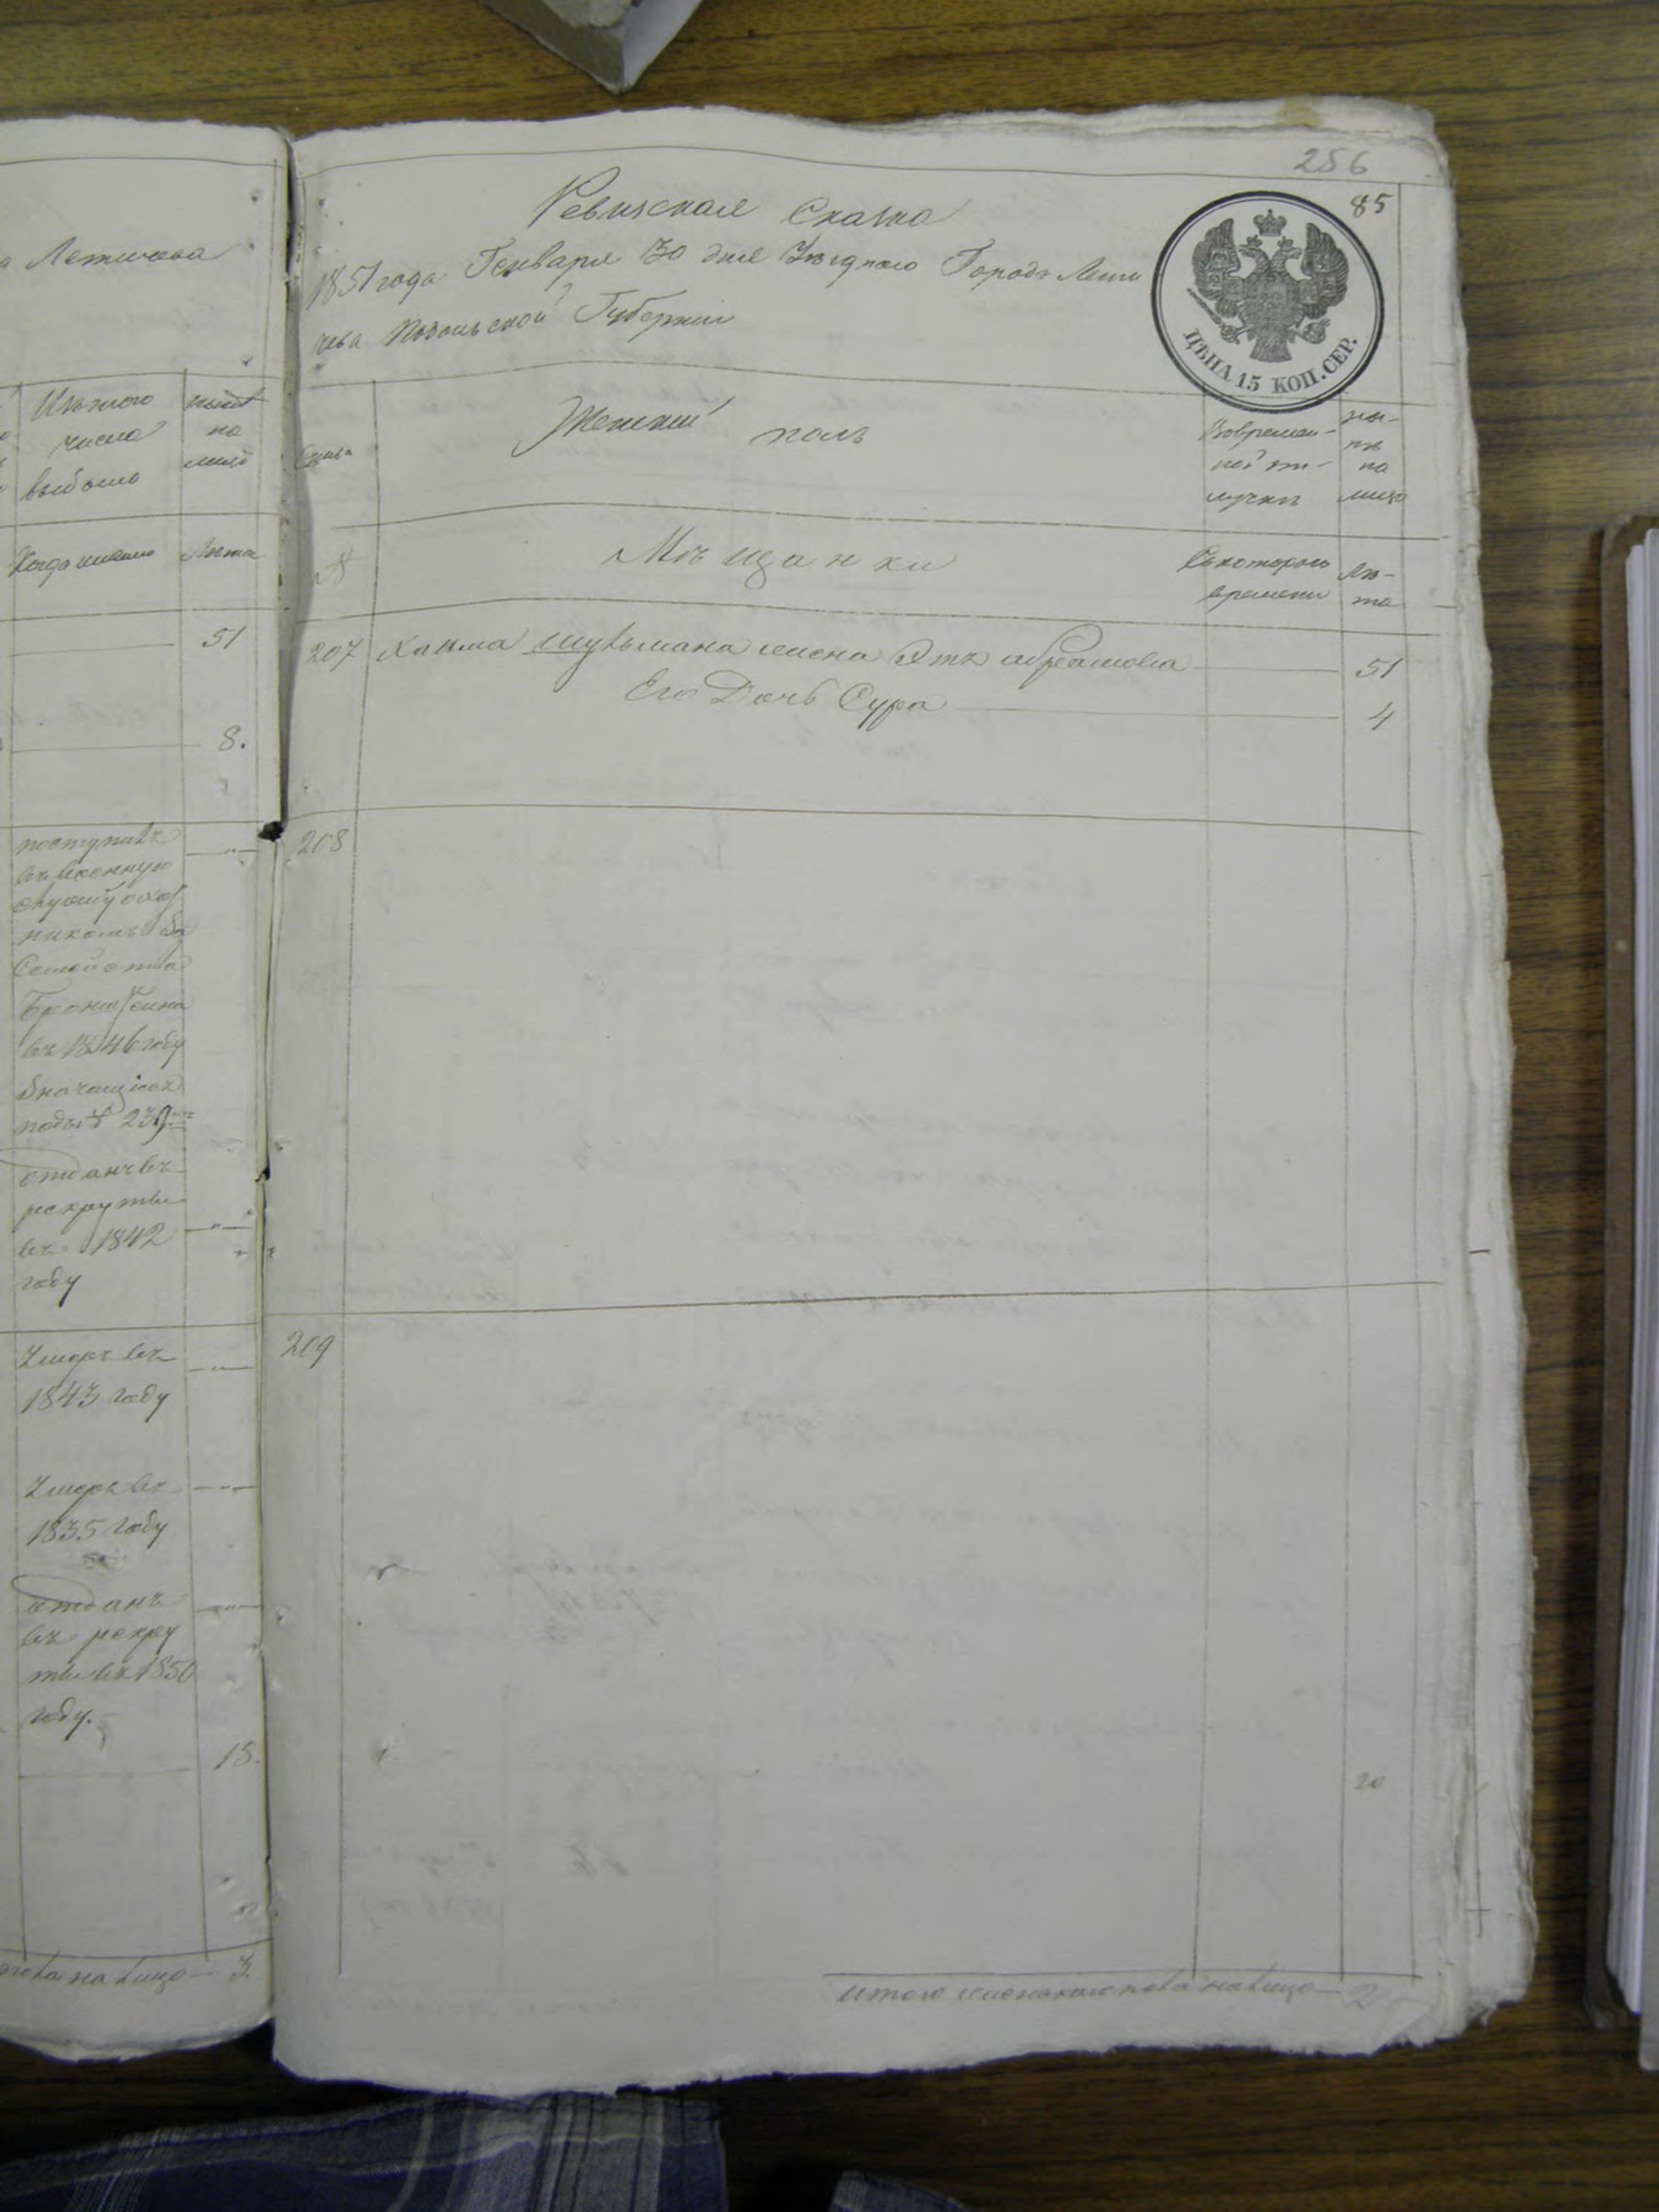 а Летичева
Изтого
числа
выбыло
ныне
на
лицо
Когда имянно
Лета
51
8.
поступилъ
въ военную
службу охот
никомъ за
Семейства
Бронштейна
въ 1846 году
значащiеся
подъ № 239мъ
отданъ въ
рекруты
въ 1842
году
Умеръ въ
1843 году
Умеръ въ
1835 году
отданъ
въ рекру
ты въ 1850
году.
15.
пола на лицо — 3.
256
85
Ревизская Сказка
1851 года Генваря 30 дня Уезднаго Города Лети
чева Подольской Губернии
ЦѢНА 15 КОП. СЕР.
Семьи
Женский полъ
Вовремен-
ной от-
лучкѣ
ны-
нѣ
на
лицо
№
Мѣщанки
Съкотораго
времени
Лѣ-
та
207
Хаима Шульмана жена Этя Абрамова
51
Его Дочь Сура
4
208
209
20
итого женскаго пола налицо — 2